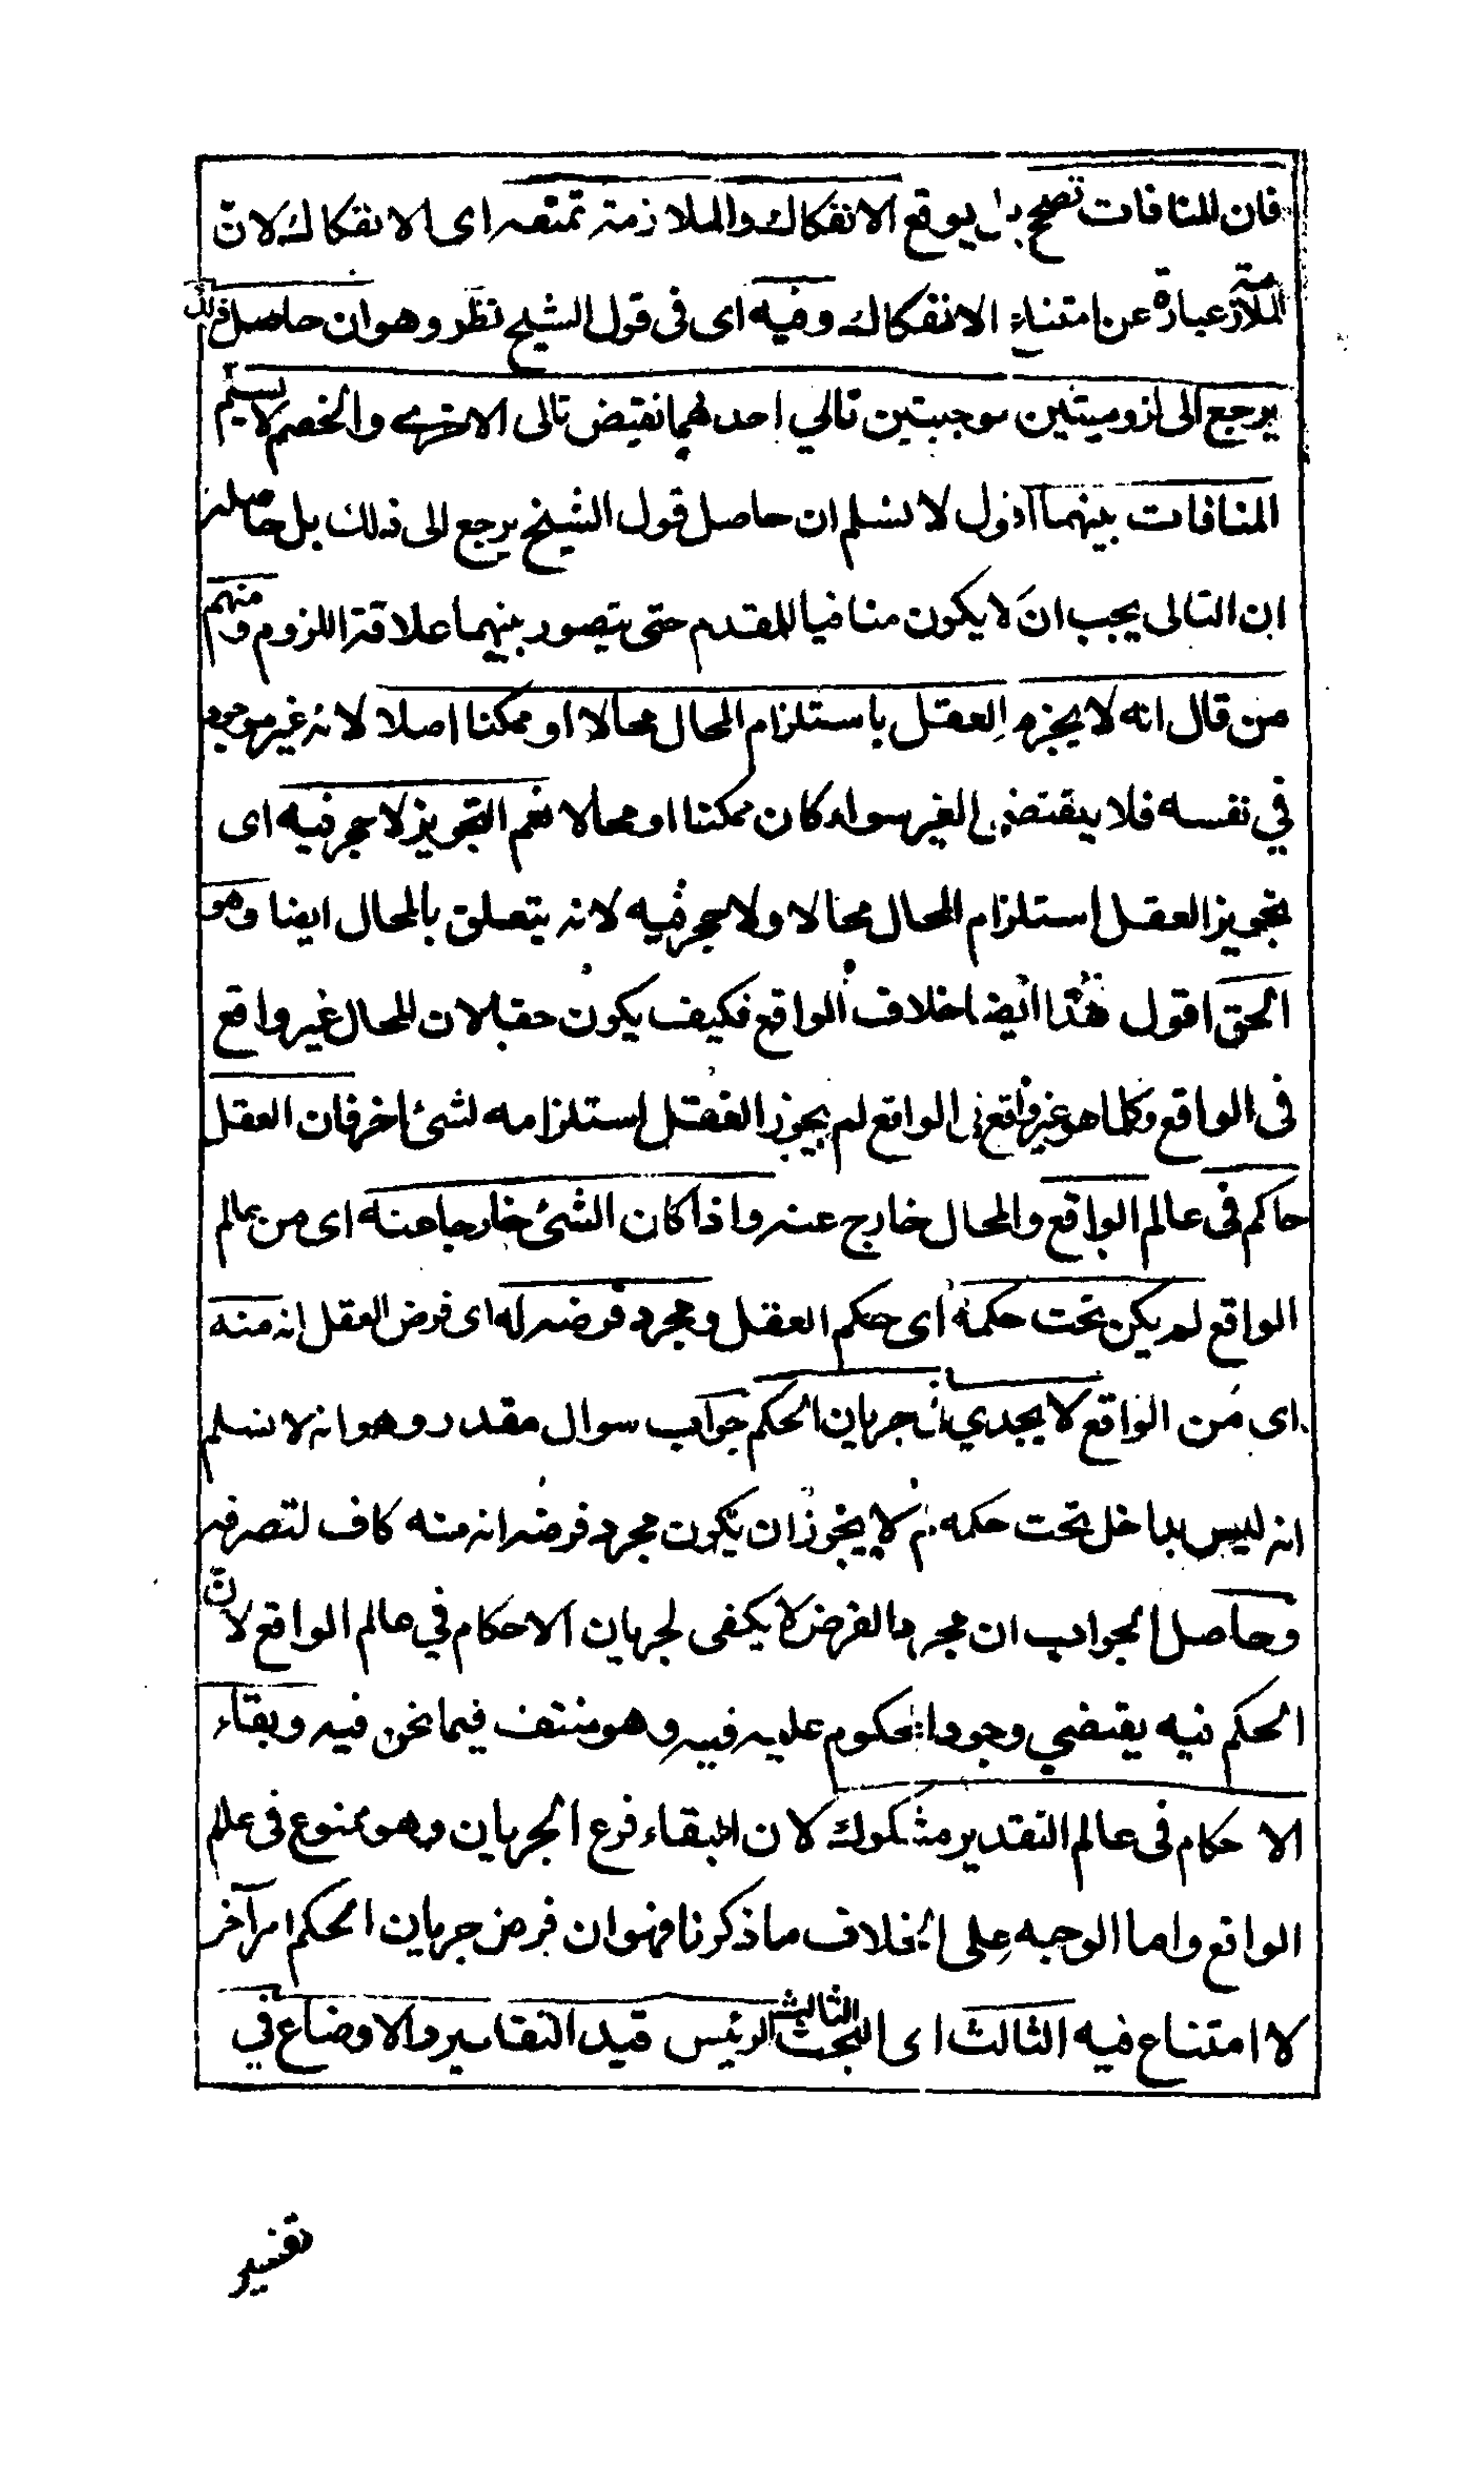 فان المنافات تصحح بل يوقع الانفكاك والملازمة تمنعه اى الانفكاك لان
الملازمة عبارة عن امتناع الانفكاك وفيه اى فى قول الشيخ نظر وهو ان حاصل
يرجع الى لزوميتين موجبتين تالي احدهما نقيض تالى الاخرى والخصم لا يسلم
المنافات بينهما اقول لا نسلم ان حاصل قول الشيخ يرجع الى ذلك بل حاصله
ان التالى يجب ان لا يكون منافيا للمقدم حتى يتصور بينهما علاقة اللزوم ومنهم
من قال انه لا يجزم العقل باستلزام المحال محالا او ممكنا اصلا لانه غير موجود
في نفسه فلا يقتضى الغير سواء كان ممكنا او محالا نعم التجويز لا حجر فيه اى
تجويز العقل استلزام المحال محالا ولا حجر فيه لانه يتعلق بالمحال ايضا وهو
الحق اقول هذا ايضا خلاف الواقع فكيف يكون حقا لان المحال غير واقع
فى الواقع وكلما هو غير واقع فى الواقع لم يجوز العقل استلزامه لشئ اخر فان العقل
حاكم فى عالم الواقع والمحال خارج عنه واذا كان الشئ خارجا عنه اى من عالم
الواقع لم يكن تحت حكمه اى حكم العقل ومجرد فرضه له اى فرض العقل انه منه
اى من الواقع لا يجدي جريان الحكم جواب سوال مقدر وهو انه لا نسلم
انه ليس بداخل تحت حكمه لم لا يجوز ان يكون مجرد فرضه انه منه كاف لتصرفه
وحاصل الجواب ان مجرد الفرض لا يكفى لجريان الاحكام في عالم الواقع لان
الحكم فيه يقتضي وجود المحكوم عليه فيه وهو منتف فيما نحن فيه وبقاء
الاحكام فى عالم التقدير مشكوك لان البقاء فرع الجريان وهو ممنوع فى عالم
الواقع واما الوجه على الخلاف ما ذكرنا فهو ان فرض جريان الحكم امر آخر
لا امتناع فيه الثالث اى البحث الثالث الرئيس قيد التقادير والاوضاع في
تفسير